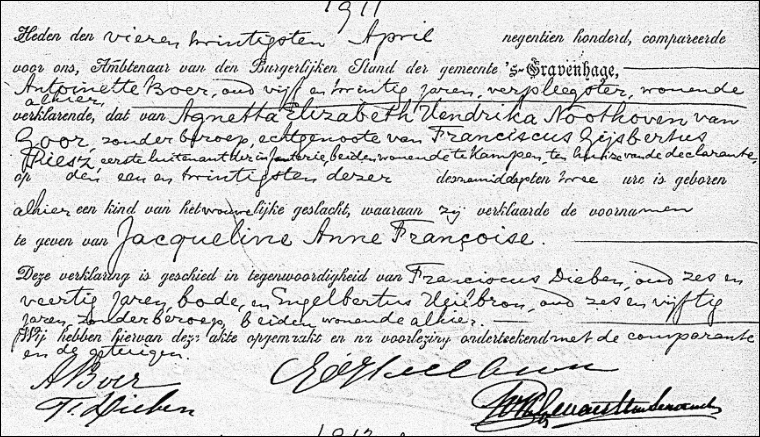 1911
Heden den vier en twintigsten April negentien honderd, compareerde
voor ons, Ambtenaar van den Burgerlijken Stand der gemeente 's-Gravenhage,
Antoinette Boer, oud vijf en twintig jaren, verpleegster, wonende
alhier,
verklarende, dat van Agnetta Elizabeth Hendrika Noothoven van
Goor, zonder beroep, echtgenoote van Franciscus Gijsbertus
Riesz, eerste luitenant der infanterie, beiden wonende te Kampen, ten huize van de declarante,
op den een en twintigsten dezer des namiddags ten twee ure is geboren
alhier een kind van het vrouwelijke geslacht, waaraan zij verklaarde de voornamen
te geven van Jacqueline Anne Françoise.
Deze verklaring is geschied in tegenwoordigheid van Franciscus Dieben, oud zes en
veertig jaren, bode, en Engelbertus oud zes en vijftig
jaren, zonder beroep, beiden wonende alhier.
Wij hebben hiervan deze akte opgemaakt en na voorlezing onderteekend met de comparante
en de getuigen.
A Boer
F. Dieben